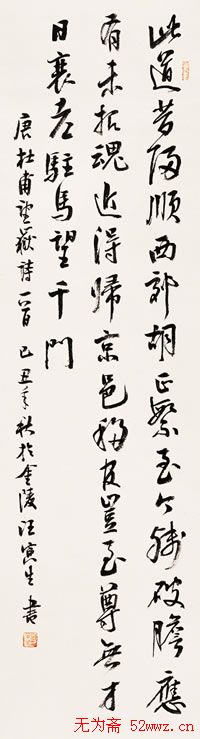 此道昔歸順西郊胡正繁至今殘破膽應
有未招魂近得歸京邑移官豈至尊無才
日衰老駐馬望千門
唐杜甫望嶽詩一首 己丑年秋於金陵汪寅生書
无为斋 52wwz.cn